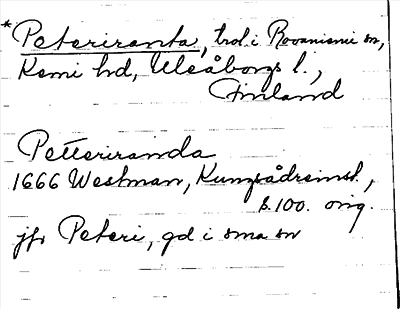 * Peteriranta, trol. i Rovaniemi sn,
Kemi hd, Uleåborgs l.,
Finland
Petteriranda
1666 Westman, Kungsådreinst.,
s. 100. orig.
jfr Peteri, gd i sma sn